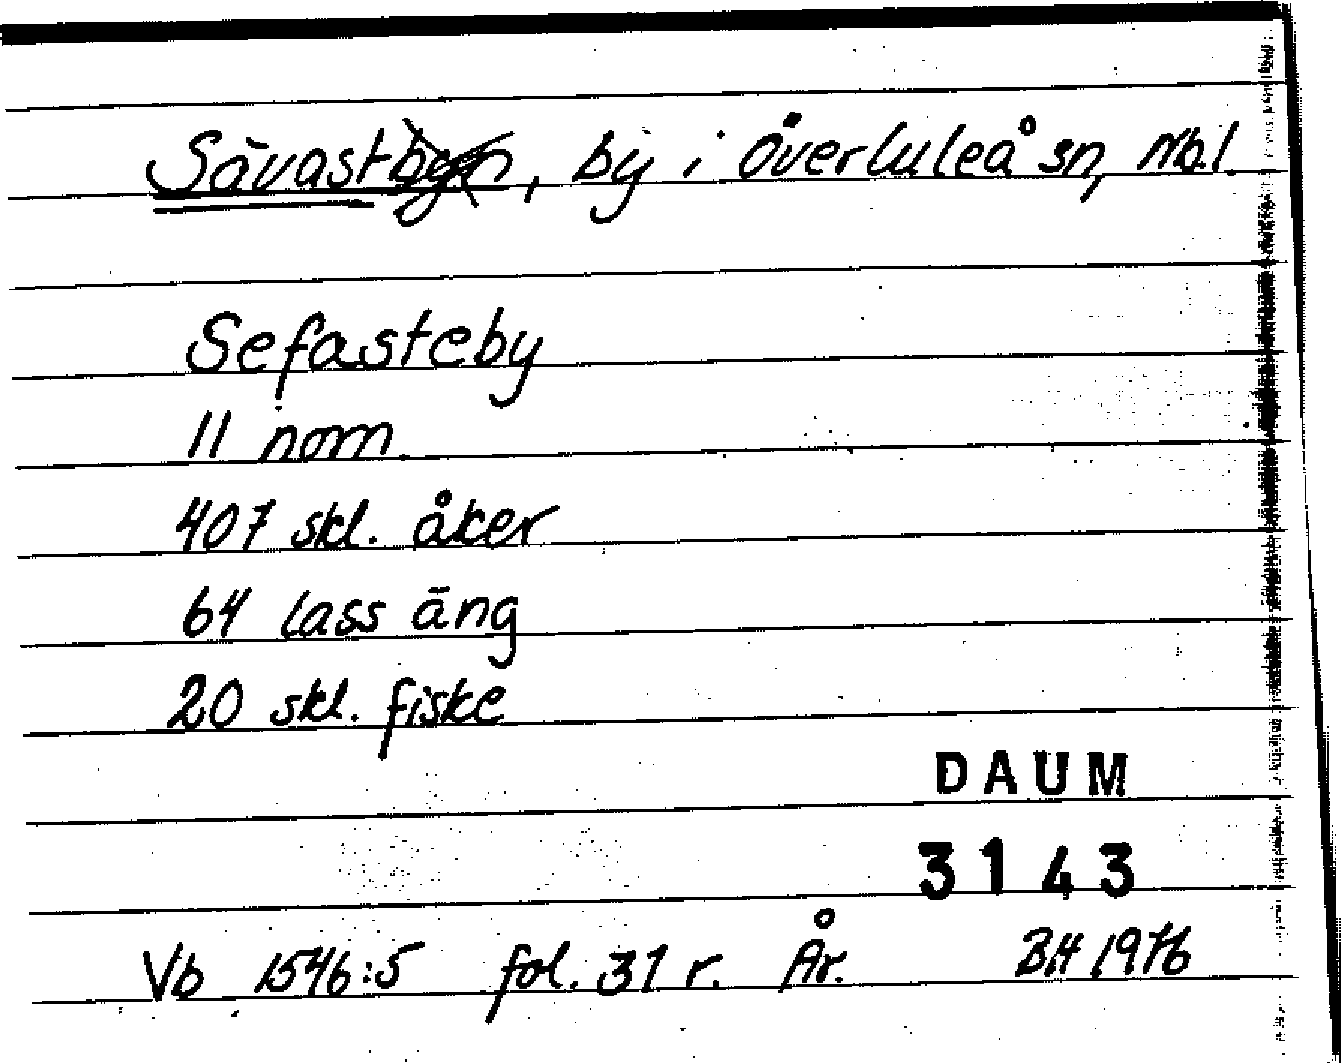 Sävastbyn, by i Överluleå sn, Nb.l.
Sefasteby
11 nom.
407 skl. åker
64 lass äng
20 skl. fiske
DAUM
3143
Vb 1546:5 fol. 31 r. År. BH 1976